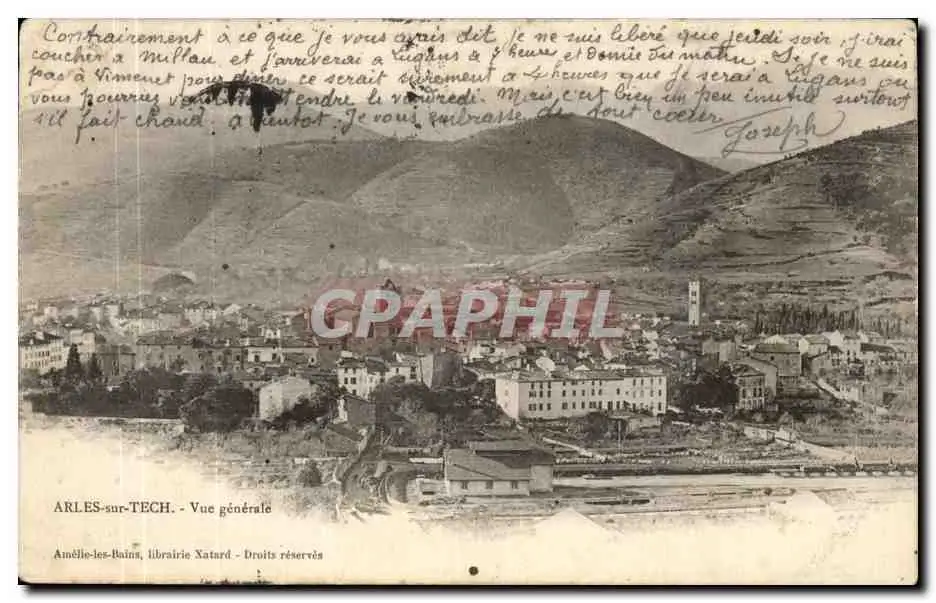 Contrairement à ce que je vous avais dit je ne suis libéré que jeudi soir. J'irai
coucher à Millau et j'arriverai à Lugans à 7 heure et demie du matin. Si je ne suis
pas à Vimenet pour diner ce serait surement à 4 heures que je serai à Lugans ou
vous pourrez venir m'attendre le vendredi. Mais c'est bien un peu inutile surtout
s'il fait chaud. à bientot. Je vous embrasse de tout coeur
Joseph
CPAPHIL
ARLES-sur-TECH. - Vue générale
Amélie-les-Bains, librairie Xatard - Droits réservés